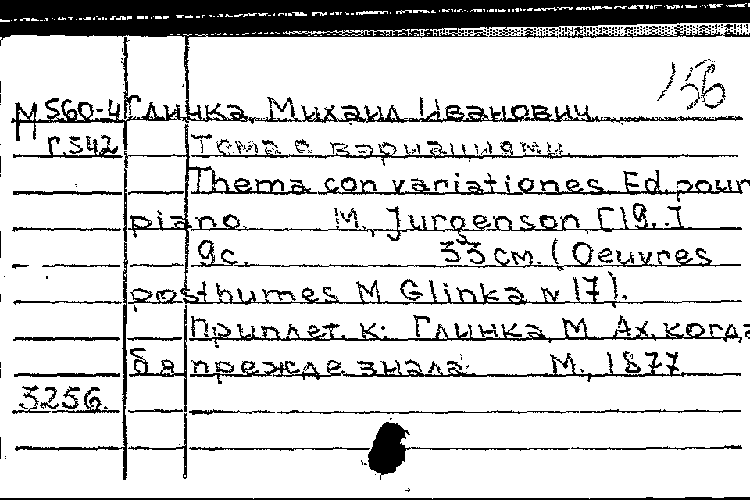 156
М 560-4 Глинка, Михаил Иванович.
Г.542 Тема с вариациями.
Thema con variationes Ed. pour
piano. М., Jurgenson [19..]
9 с. 33 см. (Oeuvres
posthumes M. Glinka N 17).
Приплет. к: Глинка, М. Ах, когда
б я прежде знала. М., 1877
3256.